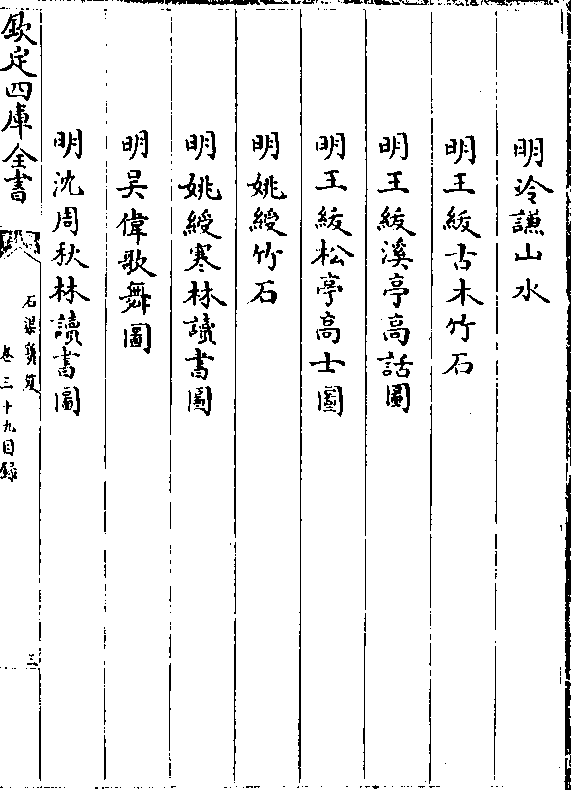 明冷謙山水
明王紱古木竹石
明王紱溪亭高話圖
明王紱松亭高士圖
明姚綬竹石
明姚綬寒林讀書圖
明吴偉歌舞圖
明沈周秋林讀書圖
欽定四庫全書
石渠寳笈
卷三十九目録
三